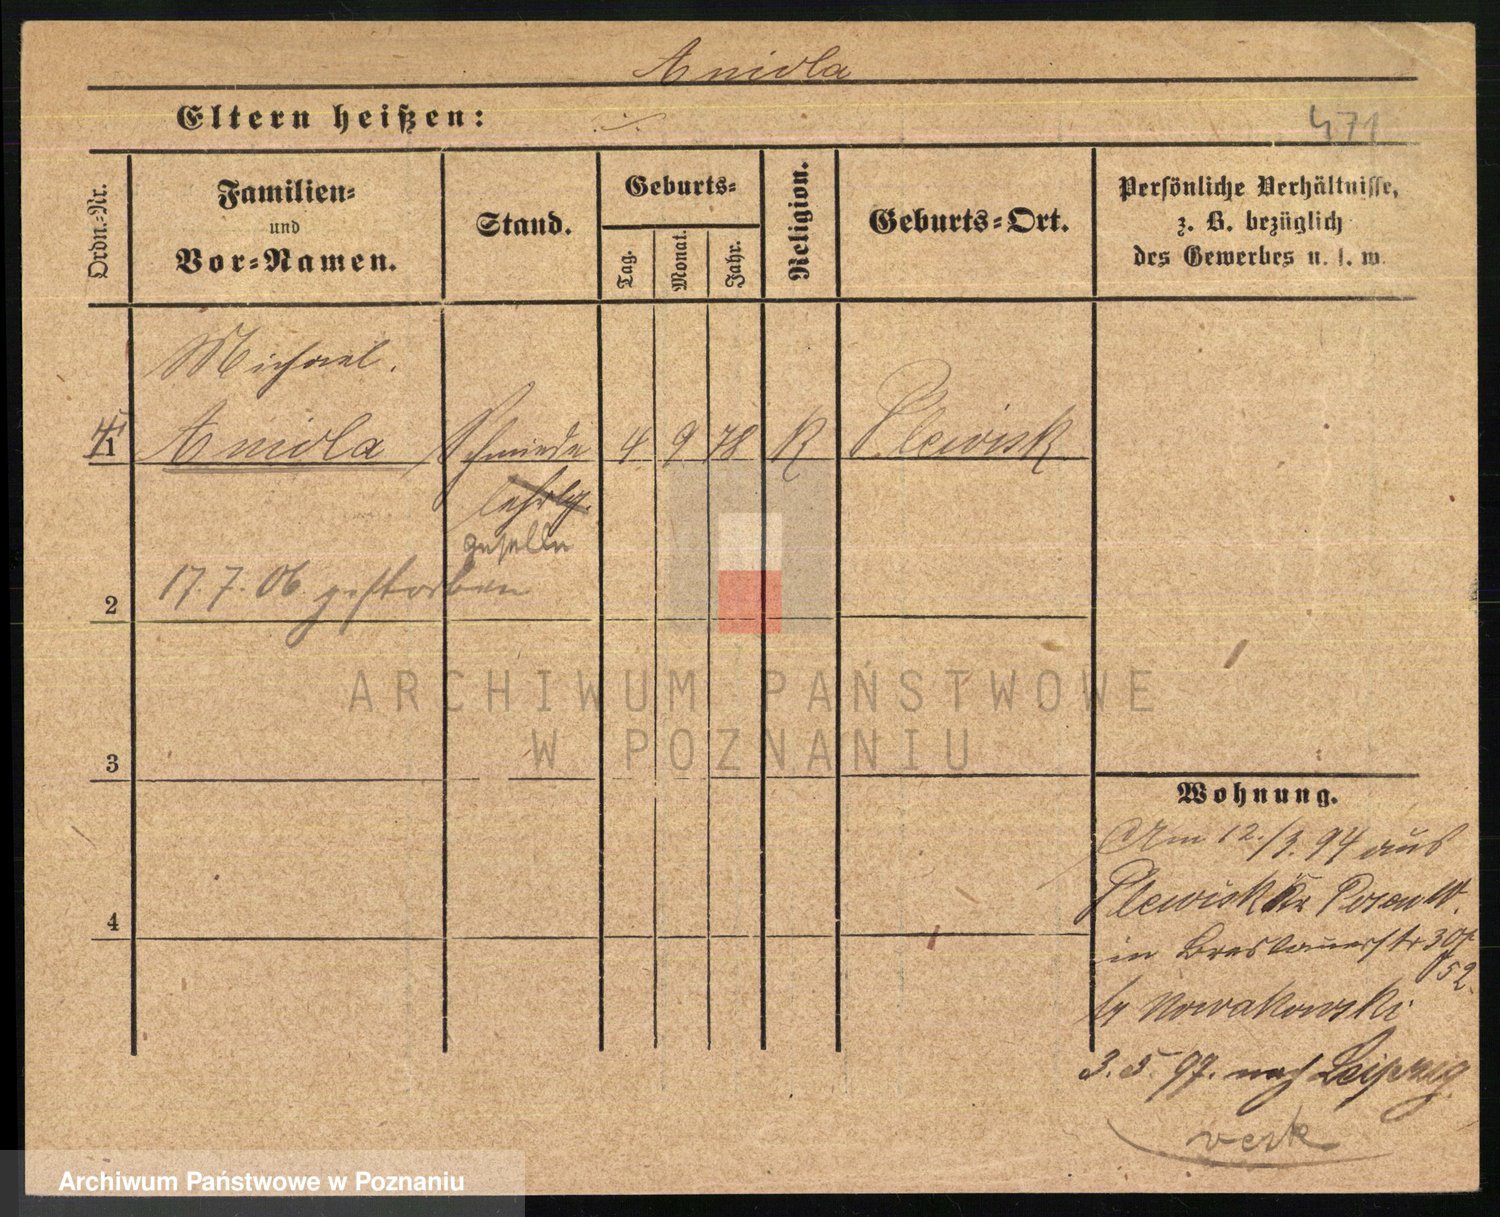 Aniola
Eltern heißen:
471
Ordn.-Nr.
Familien-
und
Vor-Namen.
Stand.
Geburts-
Tag.
Monat.
Jahr.
Religion.
Geburts-Ort.
Persönliche Verhältnisse,
z. B. bezüglich
des Gewerbes u. s. w.
Michael.
1 Aniola Schmiede 4 9 78 K Plewisk
lehrlg.
geselle
17.7.06 gestorben
2
3
4
ARCHIWUM PAŃSTWOWE
W POZNANIU
Wohnung.
Am 12./3.94 aus
Plewisk Kr Posen W.
in Breslauerstr 30
52
Nowakowski
3.5.97. nach Leipzig
verk
Archiwum Państwowe w Poznaniu